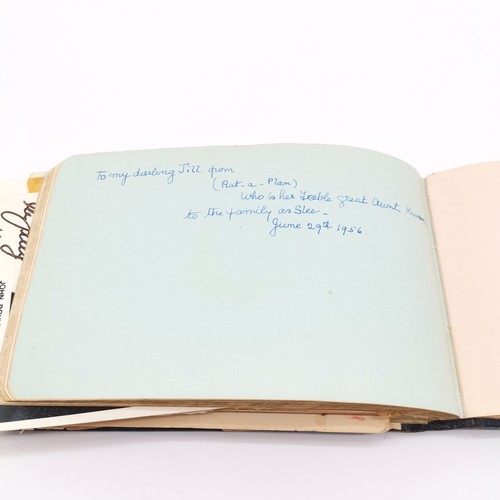 To my darling Jill. from
(Rat-a-Plan)
who is her Treble great Aunt. Known
to the family as Slee -
June 29th 1956.
JOHN